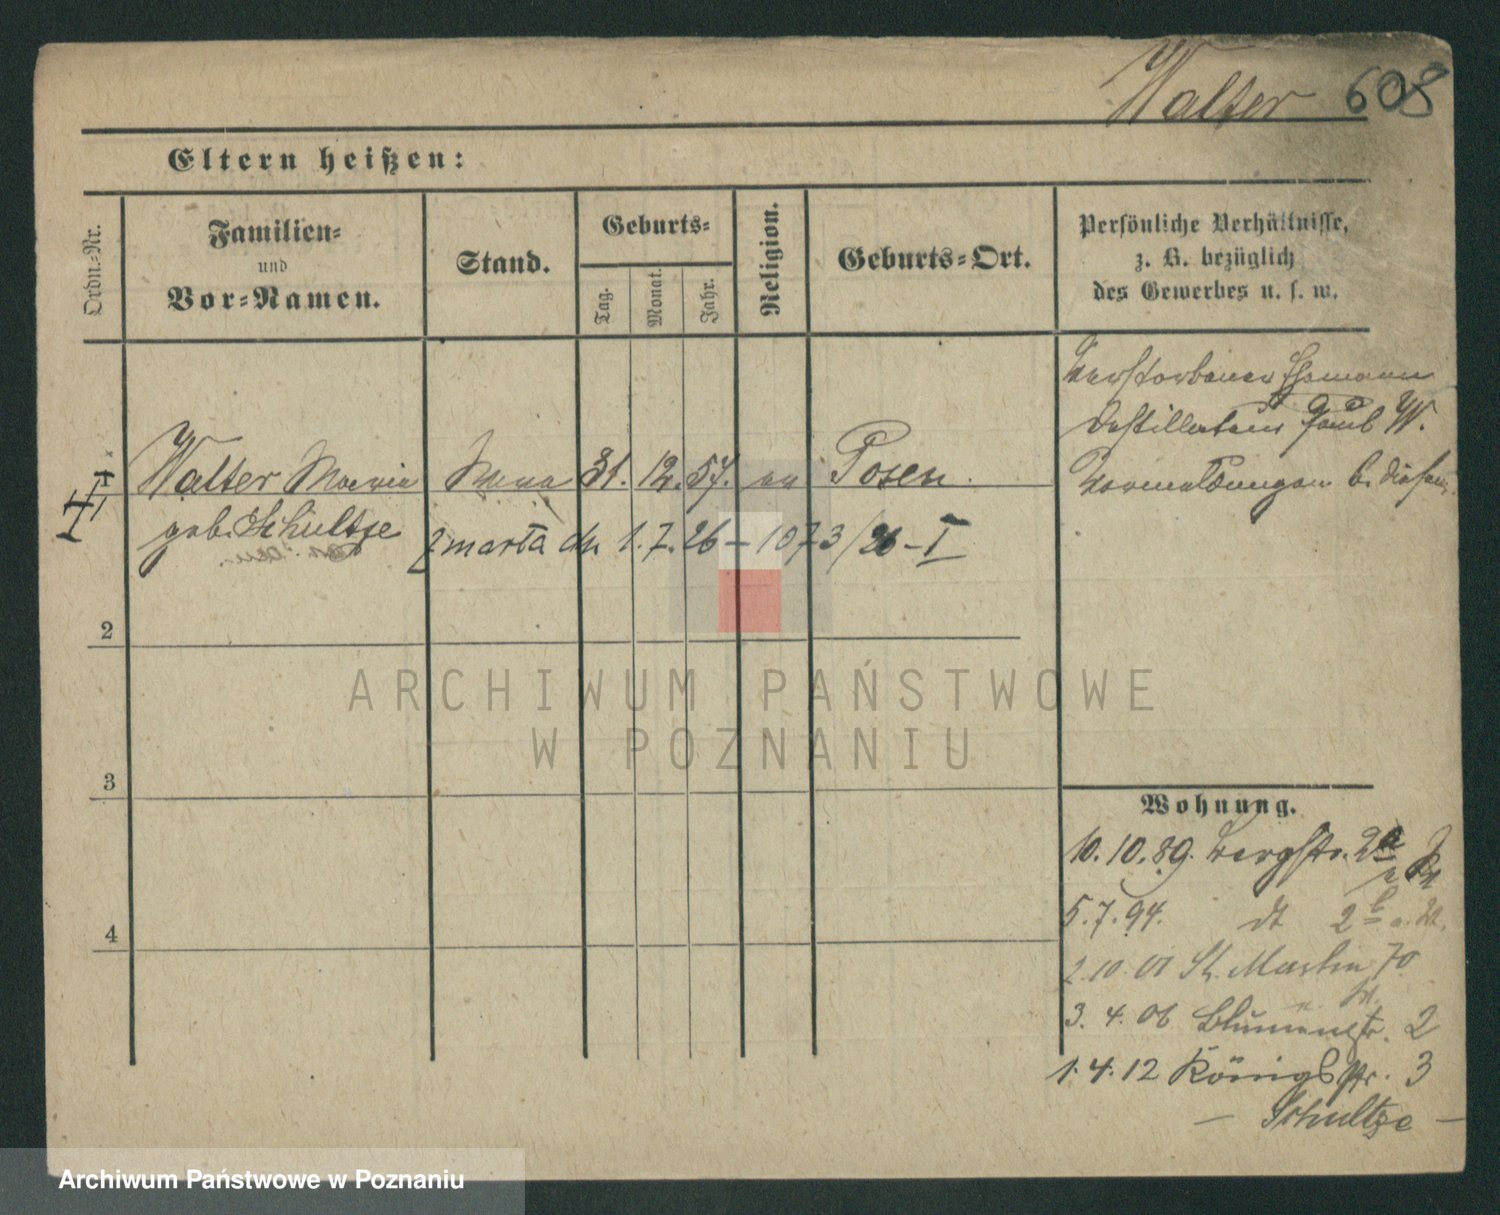 Walter 608
Eltern heißen:
Ordn.-Nr.
Familien-
und
Vor-Namen.
Stand.
Geburts-
Tag.
Monat.
Jahr.
Religion.
Geburts-Ort.
Persönliche Verhältnisse,
z. B. bezüglich
des Gewerbes u. s. w.
Verstorbener Ehemann
Destillateur Paul W.
Vormeldungen b. diesem
Walter Maria Wwe 31. 12. 57. ev Posen
geb. Schultze zmarła dn. 1. 7. 26 – 1073/26 – I
2
3
4
ARCHIWUM PAŃSTWOWE
W POZNANIU
Wohnung.
10. 10. 89. Bergstr. 2a
5. 7. 94. dt 2b
2. 10. 01 St. Martin 70
3. 4. 06 Blumenstr. 2
1. 4. 12 Königsstr. 3
– Schultze –
Archiwum Państwowe w Poznaniu